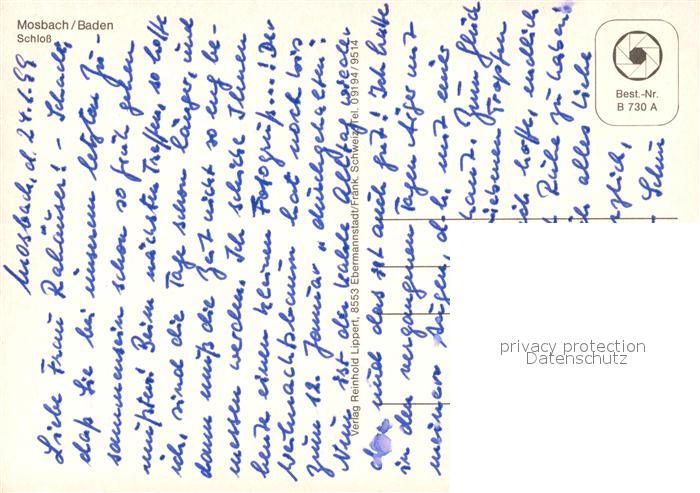 Mosbach/Baden
Schloß
Best.-Nr.
B 730 A
Verlag Reinhold Lippert, 8553 Ebermannstadt/Fränk. Schweiz, Tel. 09194/9514
privacy protection
Datenschutz
Mosbach, d. 24.1.89
Liebe Frau ! - Schade,
daß Sie bei unserem letzten Zu-
sammensein schon so früh gehen
mußten! Beim nächsten Treffen, so hoffe
ich, sind die Tage schon länger, und
dann muß die Zeit nicht so eng be-
messen werden. Ich schicke Ihnen
heute einen kleinen Fotogruß...! Der
Weihnachtsbaum hat noch bis
zum 12. Januar durchgehalten!
Nun ist der Alltag wieder
da und das ist auch gut! Ich hatte
in den vergangenen Tagen Ärger mit
meinen Augen, d.h. mit einer
Zum Glück
Tropfen
ich hoffe, endlich
Ruhe zu haben!
alles Liebe